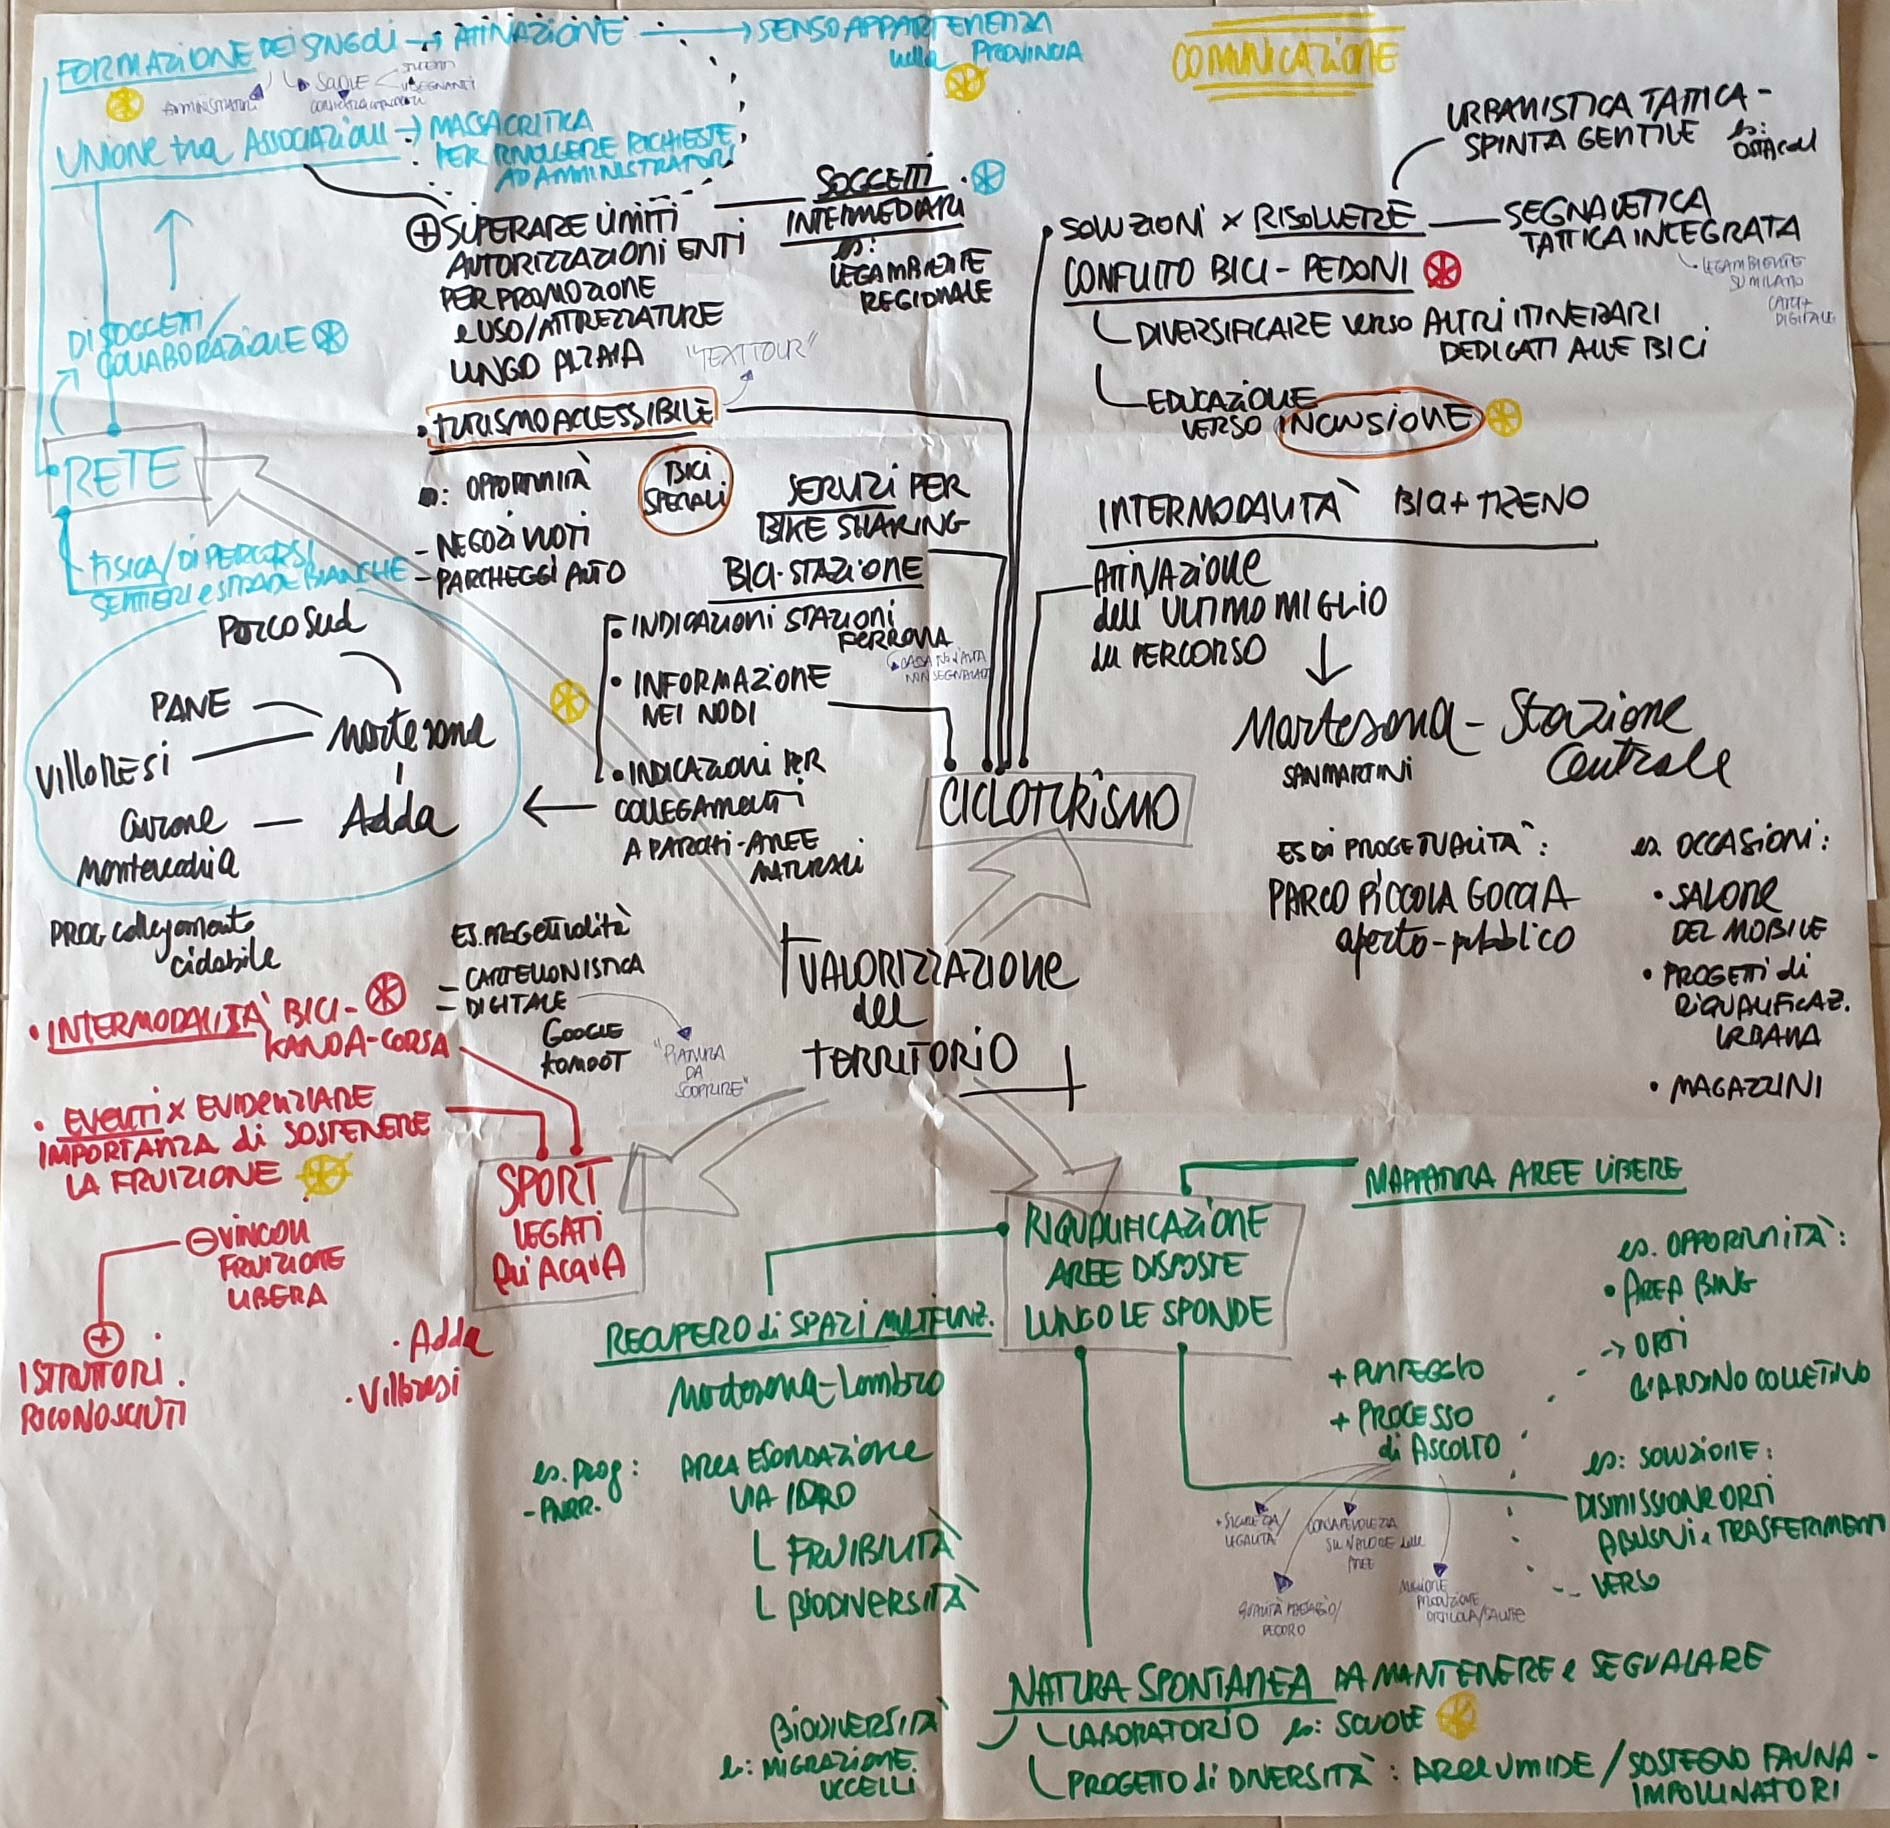 FORMAZIONE DEI SINGOLI → ATTIVAZIONE → SENSO APPARTENENZA
nella PROVINCIA
AMMINISTRATORI
SCUOLE
STUDENTI
INSEGNANTI
COMUNICAZIONE
UNIONE tra ASSOCIAZIONI → MASSA CRITICA
PER RIVOLGERE RICHIESTE
AD AMMINISTRATORI
⊕ SUPERARE LIMITI
AUTORIZZAZIONI ENTI
PER PROMOZIONE
e USO/ATTREZZATURE
LUNGO ALZAIA
SOGGETTI
INTERMEDIARI
es:
LEGAMBIENTE
REGIONALE
URBANISTICA TATTICA -
SPINTA GENTILE es:
OSTACOLI
SOLUZIONI x RISOLVERE
CONFLITO BICI - PEDONI
SEGNALETICA
TATTICA INTEGRATA
LEGAMBIENTE
SU MILANO
CART+
DIGITALE
DIVERSIFICARE verso ALTRI ITINERARI
DEDICATI ALLE BICI
EDUCAZIONE
VERSO INCLUSIONE
DI SOGGETTI/
COLLABORAZIONE
RETE
FISICA/DI PERCORSI
SENTIERI e STRADE BIANCHE
"TEXT TOUR"
• TURISMO ACCESSIBILE
es: OPPORTUNITÀ
- NEGOZI VUOTI
- PARCHEGGI AUTO
BICI
SPECIALI
SERVIZI PER
BIKE SHARING
BICI-STAZIONE
• INDICAZIONI STAZIONI
FERROVIA
NON SEGNALATA
• INFORMAZIONE
NEI NODI
• INDICAZIONI PER
COLLEGAMENTI
A PARCHI-AREE
NATURALI
INTERMODALITÀ BICI + TRENO
ATTIVAZIONE
dell'ULTIMO MIGLIO
del PERCORSO
Martesana - Stazione
Centrale
SAMMARTINI
ES DI PROGETUALITÀ:
PARCO PICCOLA GOCCIA
aperto-pubblico
es. OCCASIONI:
• SALONE
DEL MOBILE
• PROGETTI di
RIQUALIFICAZ.
URBANA
• MAGAZZINI
CICLOTURISMO
Parco Sud
PANE
VILLORESI
Martesana
Curone
Montevecchia
Adda
PROG collegamento
ciclabile
ES. PROGETTUALITÀ
- CARTELLONISTICA
- DIGITALE
GOOGLE
KOMOOT
"PIANURA
DA
SCOPRIRE"
VALORIZZAZIONE
del
TERRITORIO
• INTERMODALITÀ BICI-
KANOA-CORSA
• EVENTI x EVIDENZIARE
IMPORTANZA di SOSTENERE
LA FRUIZIONE
⊖ VINCOLI
FRUIZIONE
LIBERA
⊕
ISTRUTTORI
RICONOSCIUTI
• Adda
• Villoresi
SPORT
LEGATI
all'ACQUA
RIQUALIFICAZIONE
AREE DISPOSTE
LUNGO LE SPONDE
MAPPATURA AREE LIBERE
es. OPPORTUNITÀ:
• AREA BING
→ ORTI
GIARDINO COLLETTIVO
RECUPERO di SPAZI MULTIFUNZ.
Martesana-Lambro
es. prog:
- PNRR.
AREA ESONDAZIONE
VIA IDRO
FRUIBILITÀ
BIODIVERSITÀ
+ PUNTEGGIO
+ PROCESSO
di ASCOLTO
+ SICUREZZA/
LEGALITÀ
CONSAPEVOLEZZA
SU VALORE delle
AREE
QUALITÀ PAESAGGIO/
DECORO
MIGLIORE
PRODUZIONE
ORTICOLA/SALUTE
es: SOLUZIONE:
DISMISSIONE ORTI
ABUSIVI e TRASFERIMENTI
VERSO
NATURA SPONTANEA DA MANTENERE e SEGNALARE
LABORATORIO es: SCUOLE
PROGETTO di DIVERSITÀ: AREE UMIDE / SOSTEGNO FAUNA -
IMPOLLINATORI
BIODIVERSITÀ
es: MIGRAZIONE
UCCELLI